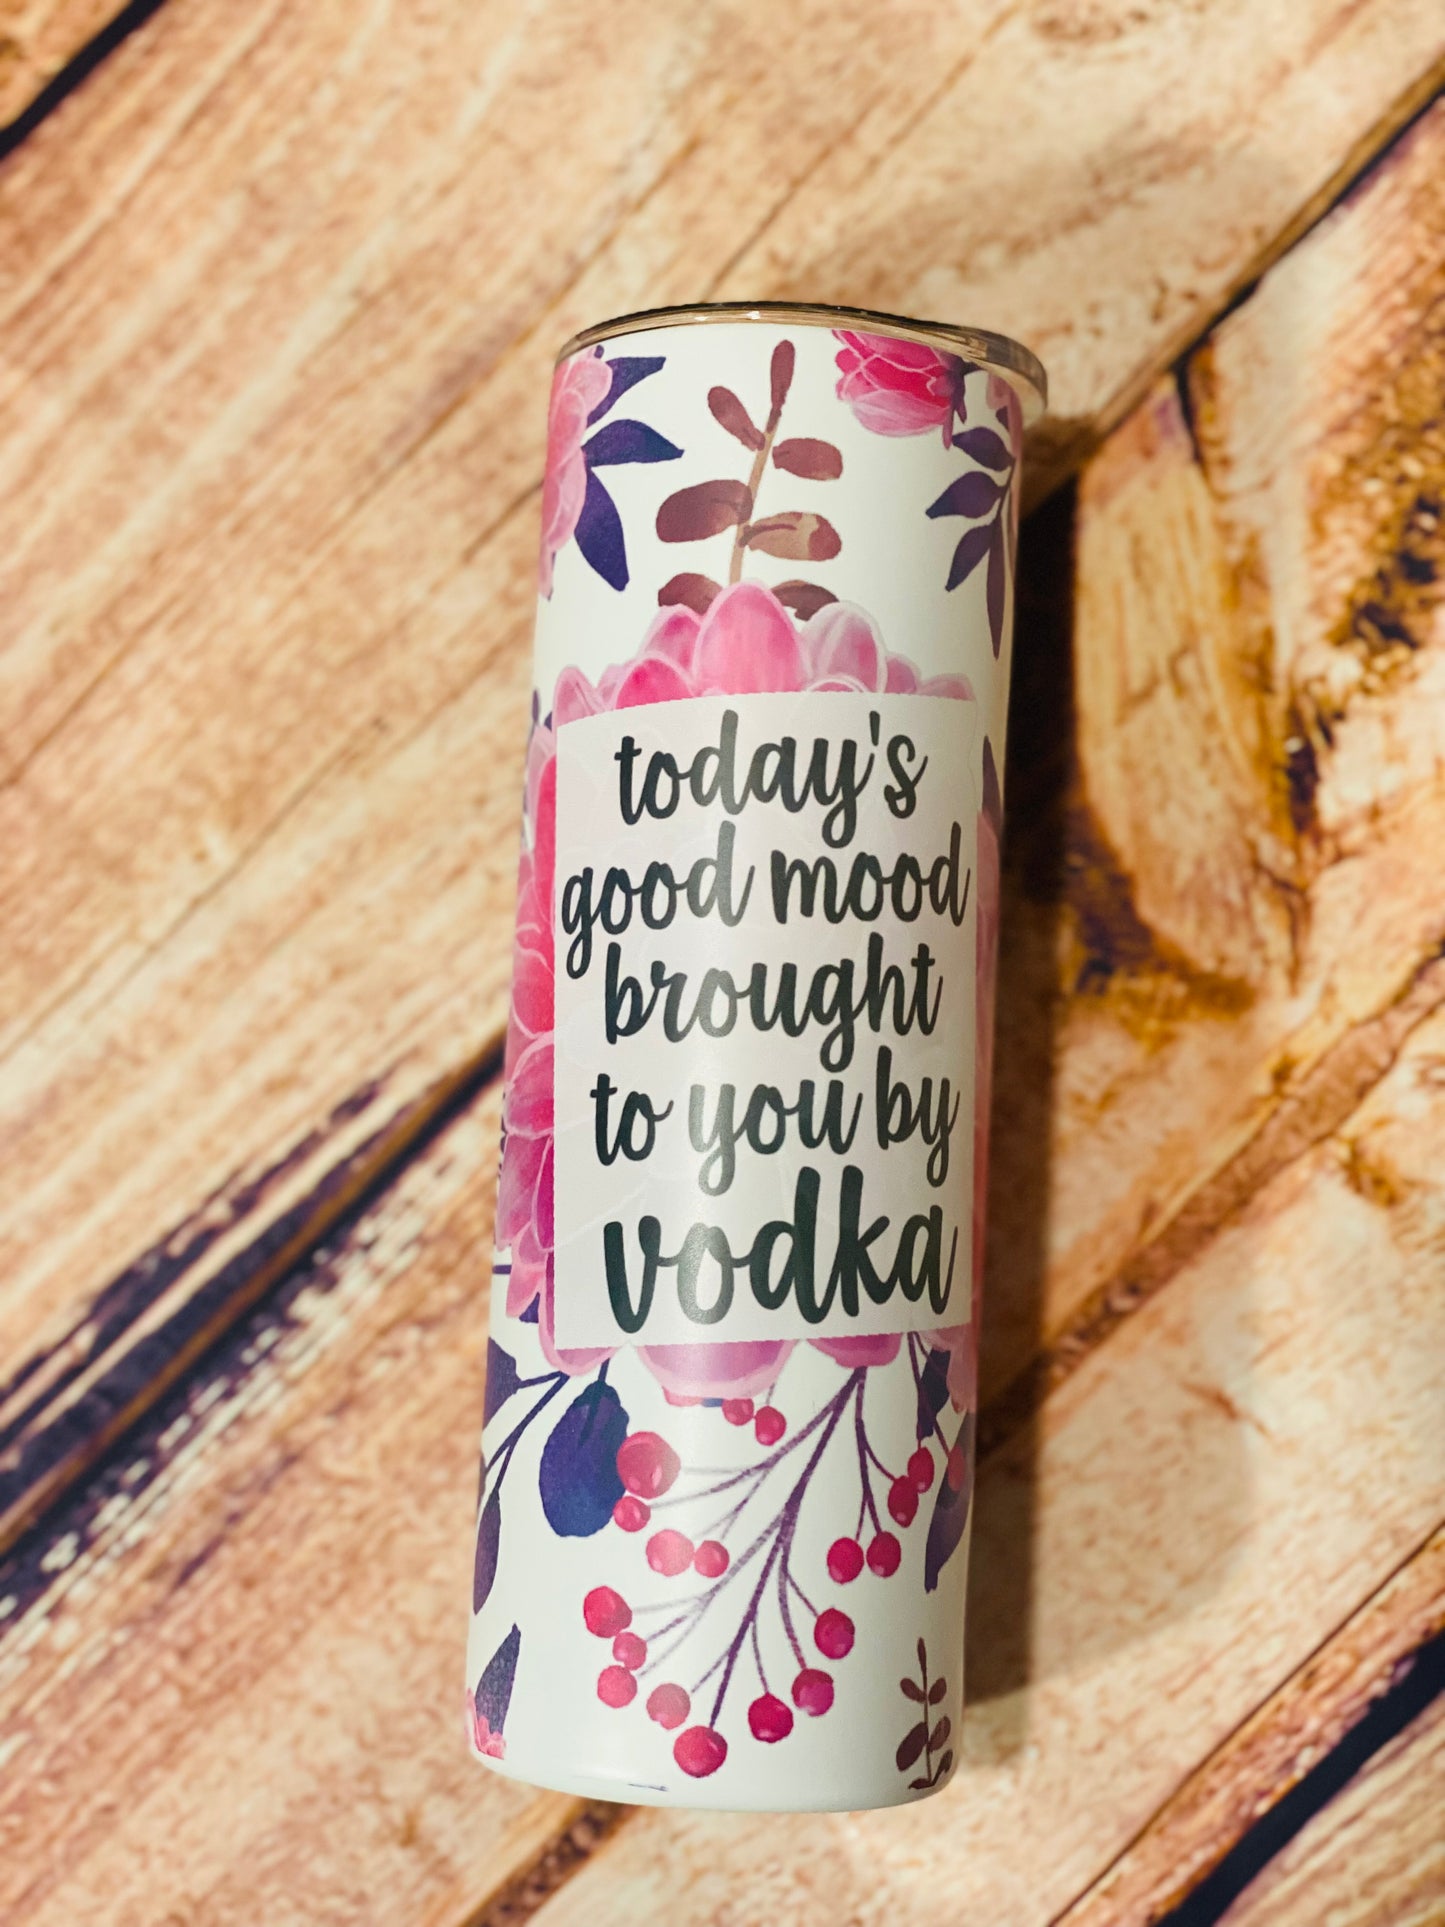 today's
good mood
brought
to you by
vodka